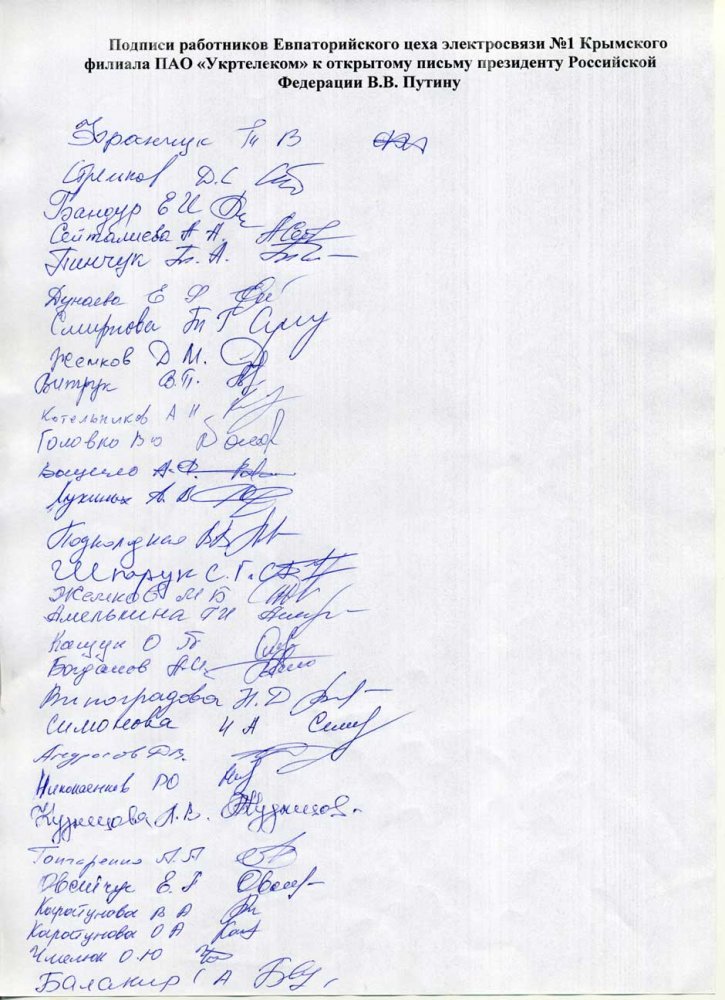 Подписи работников Евпаторийского цеха электросвязи №1 Крымского
филиала ПАО «Укртелеком» к открытому письму президенту Российской
Федерации В.В. Путину
Франчук Т В
Стремков Д.С
Бандур Е И
Сейталиева А А.
Пинчук Т. А.
Дунаева Е Ф
Смирнова Т Г
Жемков Д М.
Витрук В.П.
Котельников А Н
Головко В Ю
А.Ф.
Лухиных А. В
В В
Шпарук С. Г.
Жемков М Б
Амелькина Т И
Кащук О П
Богданов
Виноградова Н. Д
Симонова И А
Андросов Д В.
Николаенков РО
Кузнецова Л. В. Кузнецов
Гончаренко А. П
Овсийчук Е. Г
Каратунова В А
Каратунова О А
Чмелюк О. Ю
Балакир С А